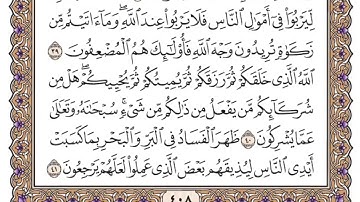 لِّيَرْبُوَا۟ فِىٓ أَمْوَٰلِ ٱلنَّاسِ فَلَا يَرْبُوا۟ عِندَ ٱللَّهِ ۖ وَمَآ ءَاتَيْتُم مِّن
زَكَوٰةٍ تُرِيدُونَ وَجْهَ ٱللَّهِ فَأُو۟لَـٰٓئِكَ هُمُ ٱلْمُضْعِفُونَ ٣٩
ٱللَّهُ ٱلَّذِى خَلَقَكُمْ ثُمَّ رَزَقَكُمْ ثُمَّ يُمِيتُكُمْ ثُمَّ يُحْيِيكُمْ ۖ هَلْ مِن
شُرَكَآئِكُم مَّن يَفْعَلُ مِن ذَٰلِكُم مِّن شَىْءٍ ۚ سُبْحَـٰنَهُۥ وَتَعَـٰلَىٰ
عَمَّا يُشْرِكُونَ ٤٠ ظَهَرَ ٱلْفَسَادُ فِى ٱلْبَرِّ وَٱلْبَحْرِ بِمَا كَسَبَتْ
أَيْدِى ٱلنَّاسِ لِيُذِيقَهُم بَعْضَ ٱلَّذِى عَمِلُوا۟ لَعَلَّهُمْ يَرْجِعُونَ ٤١
٤٠٨